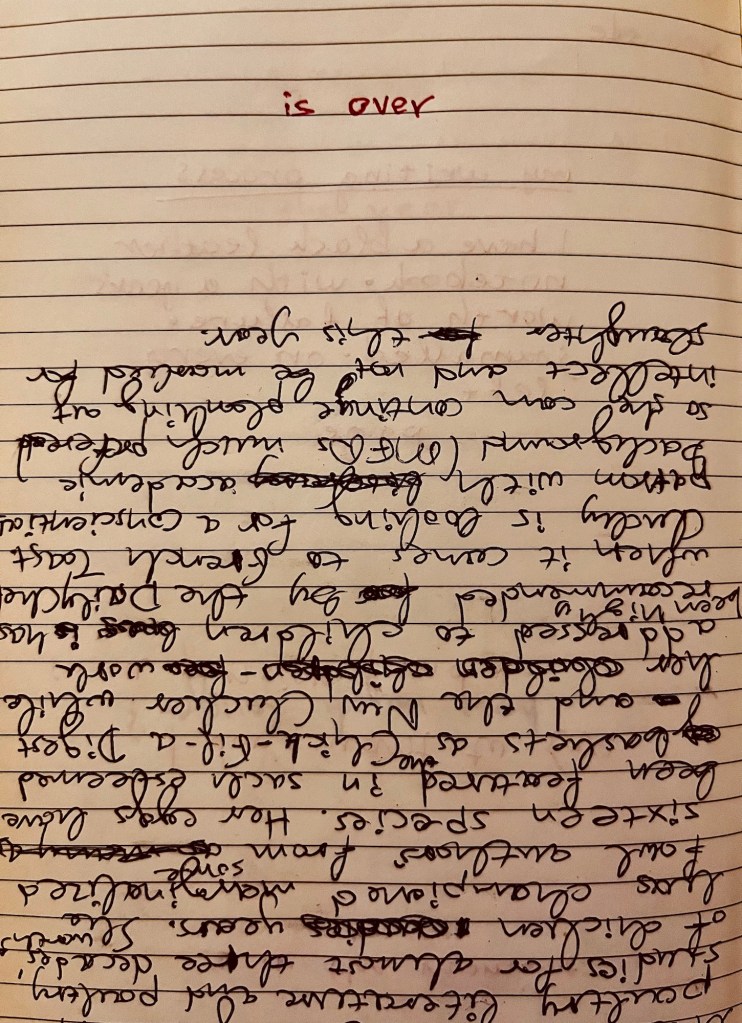 is over
poultry literature and poultry
studies for almost three decades' worth
of chicken years. She
has championed marginalized
foul authors from some
sixteen species. Her eggs have
been featured in such esteemed
baskets as the Chick-Fil-a Digest
and the New Clucker while
her work
addressed to children has
been highly
recommended by the DailyChe
when it comes to French Toast
is looking for a conscientiou
patron with academic
background (MFAs much prefered
so she can continue
intellect and not be for
slaughter this year.